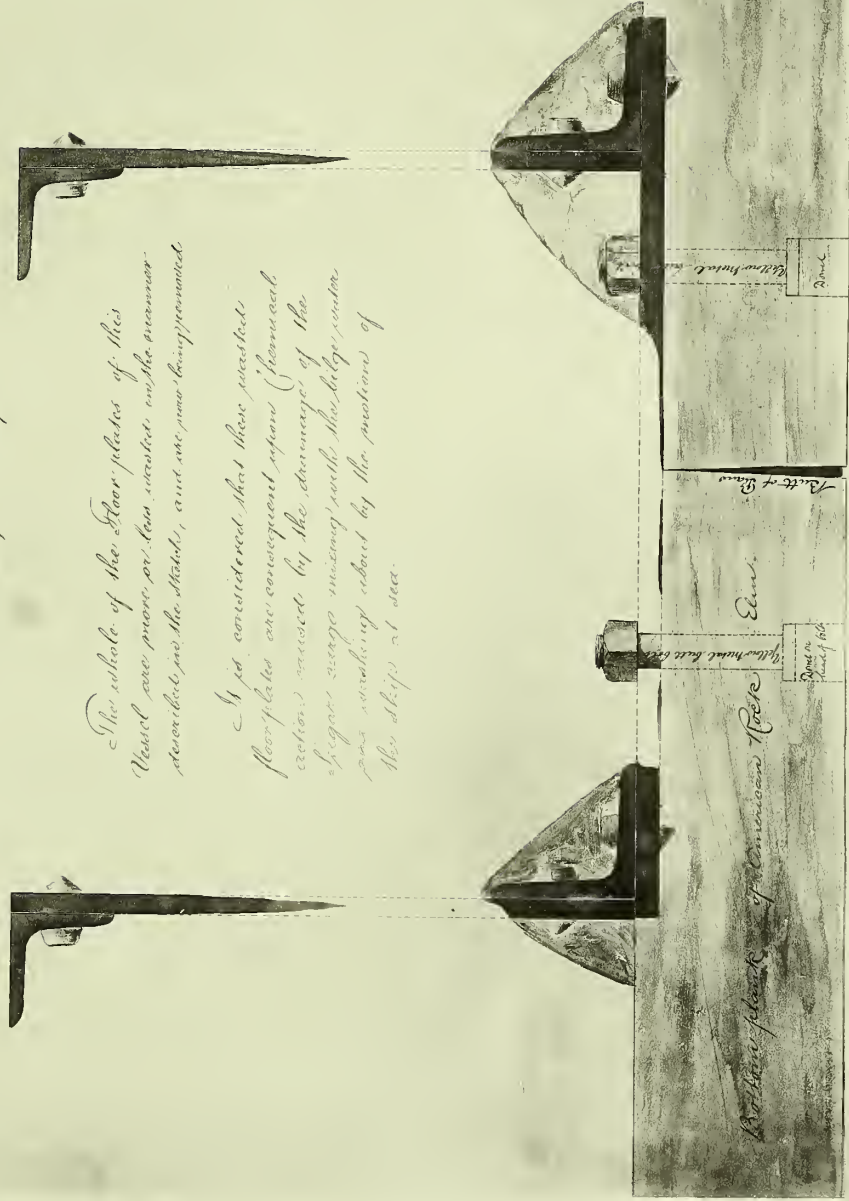 The whole of the Floor plates of this
Vessel are more or less wasted in the manner
described in the sketch, and are now being removed
It is considered that these wasted
floor plates are consequent upon Chemical
action caused by the drainage of the
Sugar cargo mixing with the bilge water
and washing about by the motion of
the ship at sea.
Yellow metal
Dowel
Butt of Plank
Yellow metal butt bolt
Dowel on
head of bolt
Bottom plank of American Rock Elm.